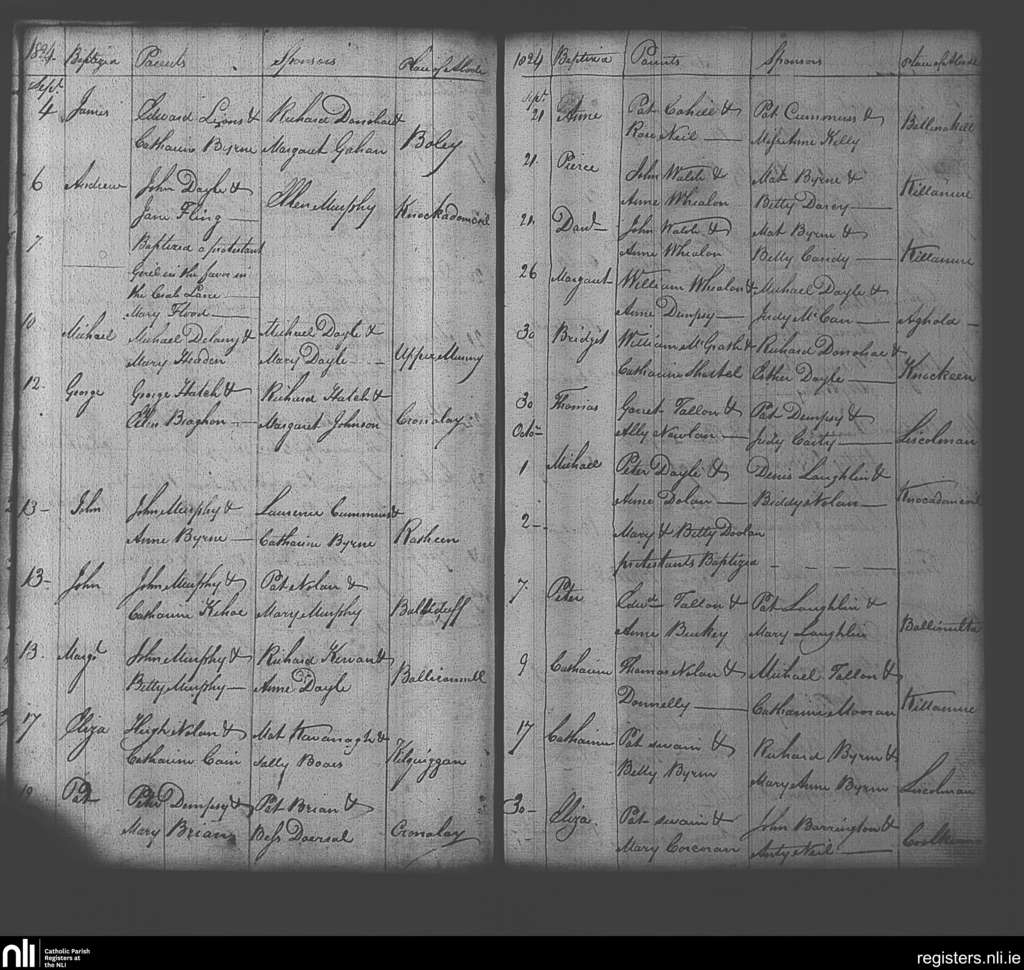 1824 Baptized Parents Sponsors Place of Abode
Sept.
4 James Edward Lyons & Richard Donohoe &
Catharine Byrne Margaret Gahan Boley
6 Andrew John Doyle & Ellen Murphy
Jane Fling Knockadomcoil
7 Baptized a protestant
Girl in the fever in
the Crab Lane
Mary Flood
10 Michael Michael Delany & Michael Doyle &
Mary Headen Mary Doyle Upper Munny
12 George George Hatch & Richard Hatch &
Braghon Margaret Johnson Cronalay
13 John John Murphy & Laurence Cummins &
Anne Byrne Catharine Byrne Rasheen
13 John John Murphy & Pat Nolan &
Catharine Kehoe Mary Murphy Balliduff
13 Margt John Murphy & Richard Kervan &
Betty Murphy Anne Doyle Balliconnell
17 Eliza Hugh Nolan & Mat Kavanagh &
Catharine Cain Sally Boais Kilquiggan
Pat Peter Dempsy & Pat Brian &
Mary Brian Bess Cronalay
1824 Baptized Parents Sponsors Place of Abode
Sept.
21 Anne Pat Cahill & Pat Cummins &
Rose Neil Anne Killy Ballinakill
21 Pierce John Walsh & Mat Byrne &
Anne Whealon Betty Darcy Killamure
21 Danl John Walsh & Mat Byrne &
Anne Whealon Betty Candy Killamure
26 Margaret William Whealon & Michael Doyle &
Anne Dempsy Judy McCan Aghold
30 Bridget William McGrath & Richard Donohoe &
Catharine Esther Doyle Knockeen
30 Thomas Garret Tallon & Pat Dempsy &
Octo Ally Nowlan Judy Carty Liscolman
1 Michael Peter Doyle & Denis Laughlin &
Anne Dolan Biddy Nolan Knocadomcoil
2 Mary & Betty Doolan
protestants Baptized
7 Peter Edwd Tallon & Pat Laughlin &
Anne Buckey Mary Laughlin Ballinulta
9 Catharine Thomas Nolan & Michael Tallon &
Donnelly Catharine Killamure
17 Catharine Pat Swain & Richard Byrne &
Betty Byrne Mary Anne Byrne Liscolman
30 Eliza Pat Swain & John Barrington &
Mary Corcoran Anty Neil
nli Catholic Parish
Registers at
the NLI
registers.nli.ie